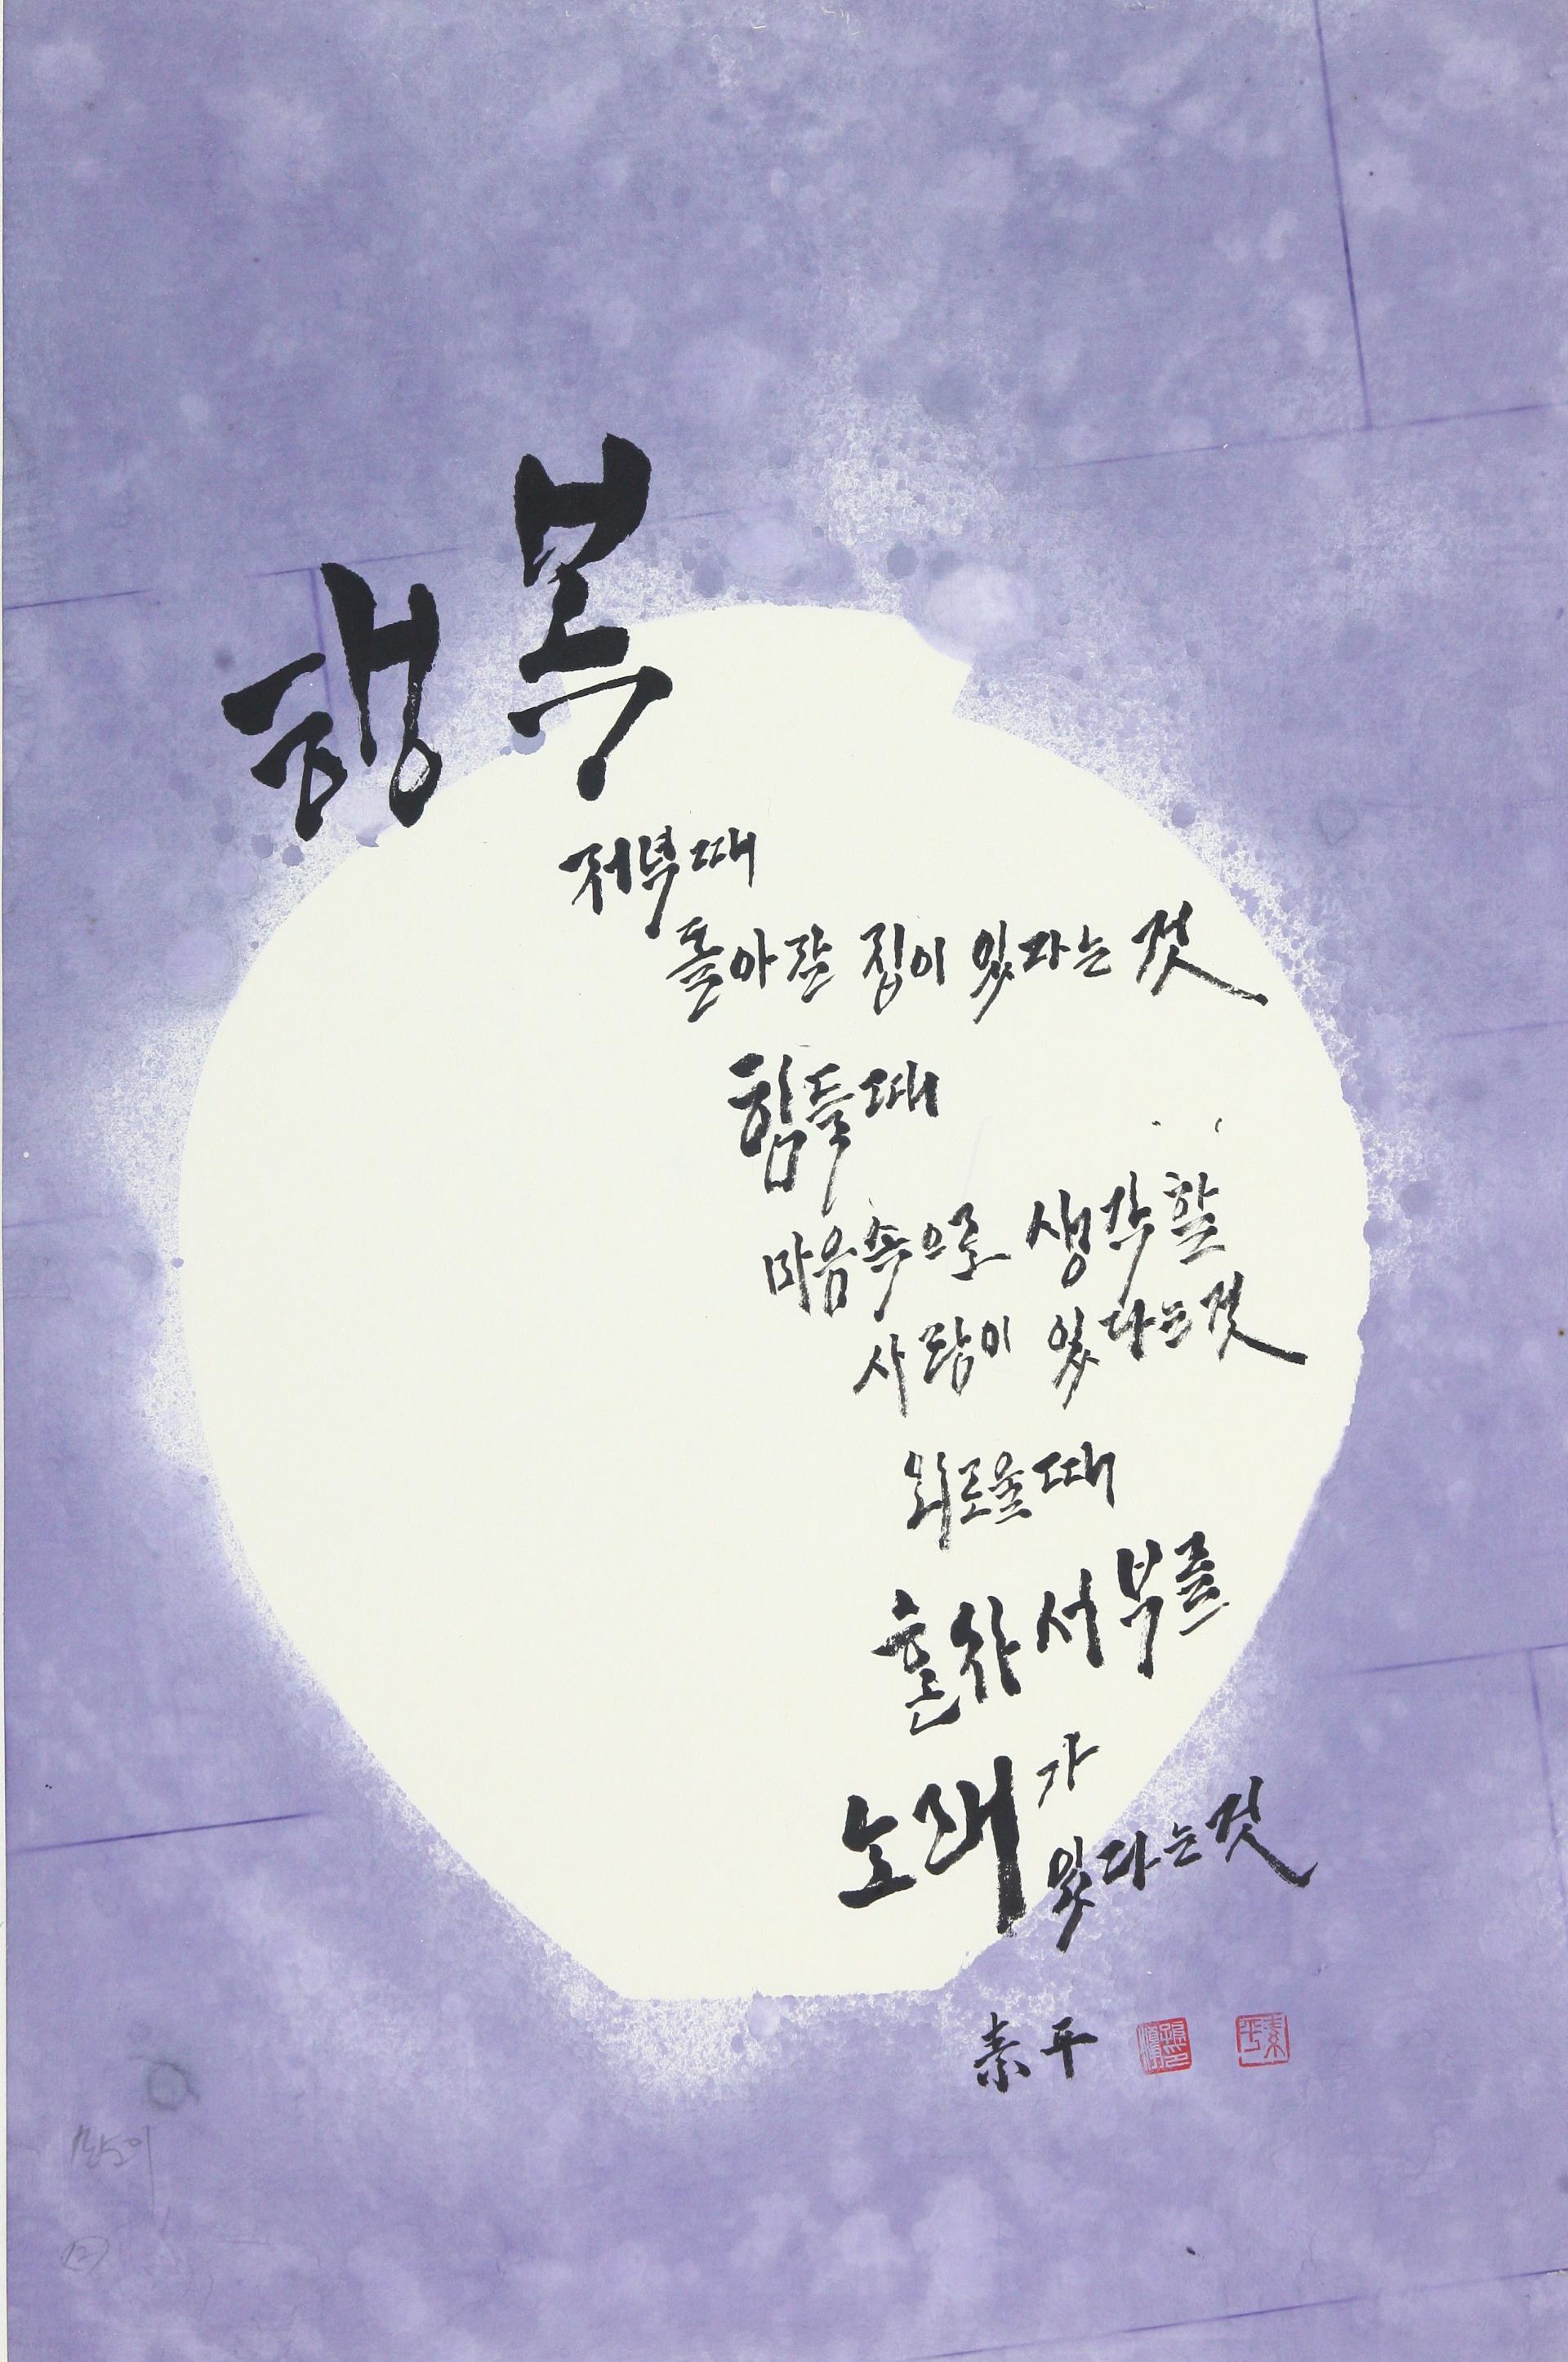 행복
저녁때
돌아갈 집이 있다는 것
힘들때
마음속으로 생각할
사람이 있다는것
외로울때
혼자서부를
노래가
있다는것
素平
素平